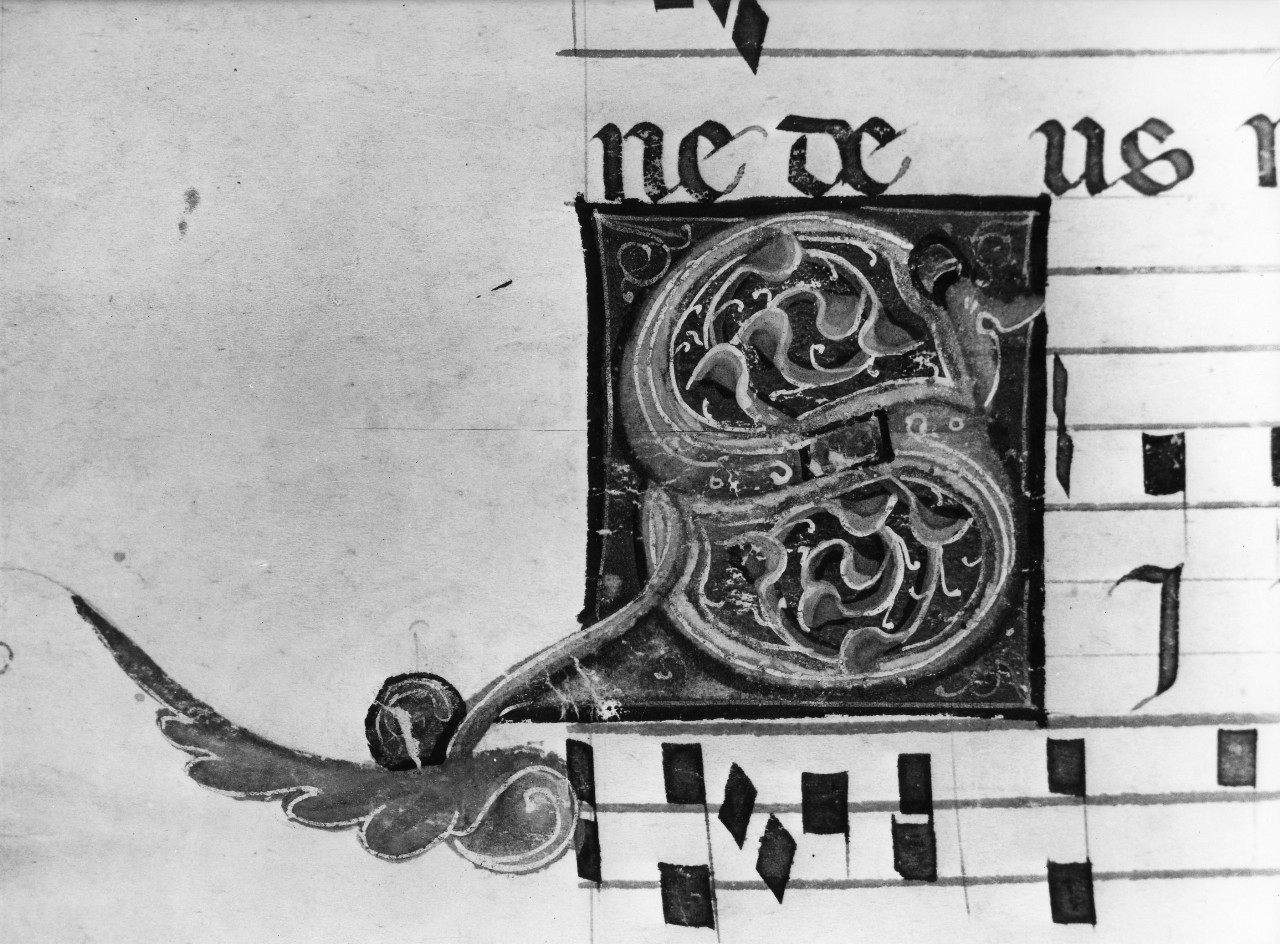 ne de us
S J